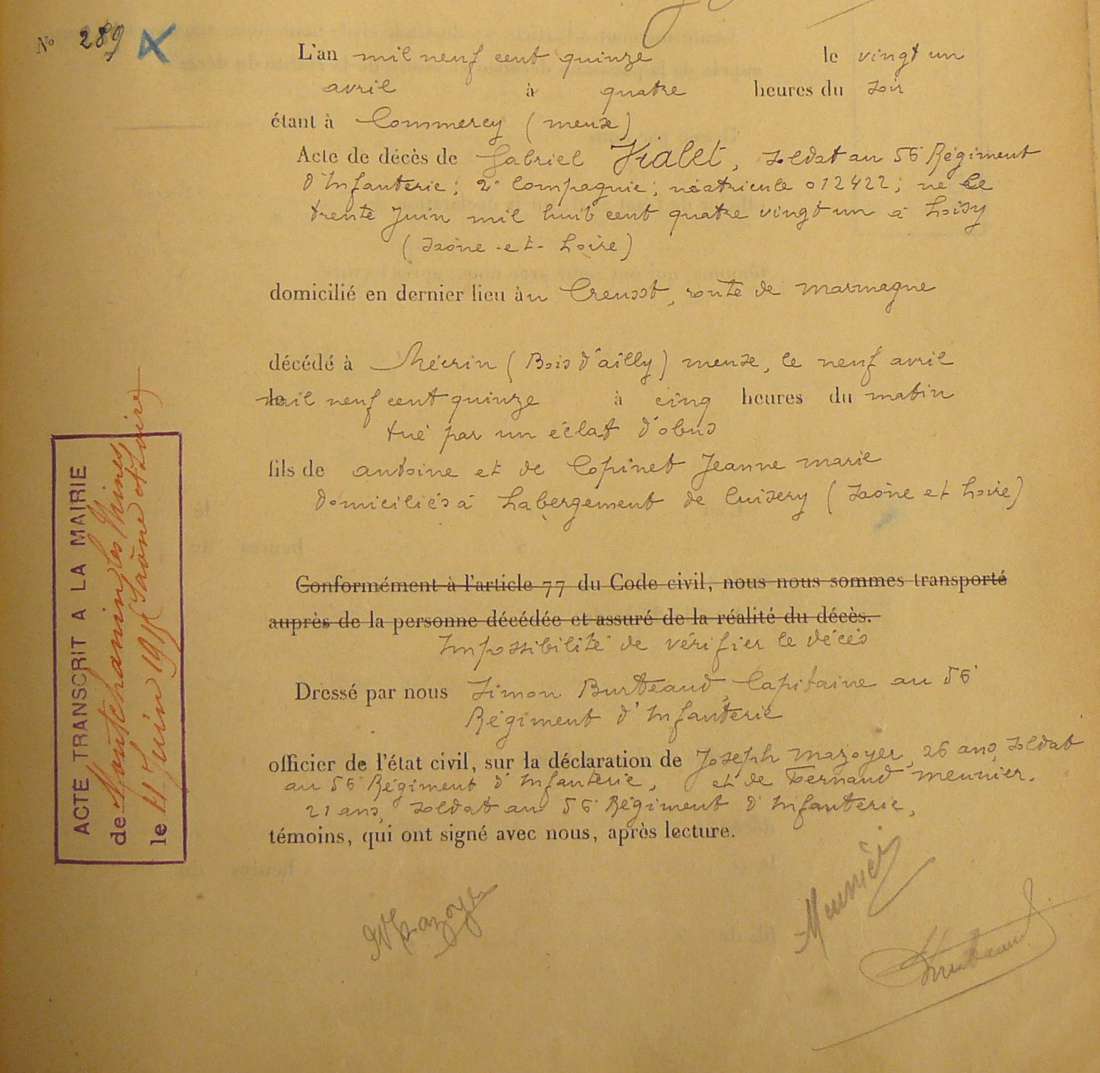 N° 289
L'an mil neuf cent quinze le vingt un
avril à quatre heures du soir
étant à Commercy (meuse)
Acte de décès de Gabriel Vialet, soldat au 56 Régiment
d'Infanterie; 2e Compagnie; matricule 012422; né le
trente Juin mil huit cent quatre vingt un à Loisy
(Saône-et-Loire)
domicilié en dernier lieu au Creusot, route de marmagne
décédé à Mécrin (Bois d'ailly) meuse, le neuf avril
mil neuf cent quinze à cinq heures du matin
tué par un éclat d'obus
fils de antoine et de Copinet Jeanne marie
domiciliés à Labergement de Cuisery (Saône et Loire)
Conformément à l'article 77 du Code civil, nous nous sommes transporté
auprès de la personne décédée et assuré de la réalité du décès.
Impossibilité de vérifier le décès
Dressé par nous Simon Burteaud, Capitaine au 56
Régiment d'Infanterie
officier de l'état civil, sur la déclaration de Joseph mazoyer, 26 ans, soldat
au 56 Régiment d'Infanterie, et de Fernand meunier,
21 ans, soldat au 56 Régiment d'Infanterie,
témoins, qui ont signé avec nous, après lecture.
Mazoyer
Meunier
ACTE TRANSCRIT A LA MAIRIE
de Montchanin les Mines
le 11 Juin 1915 (Saône et Loire)